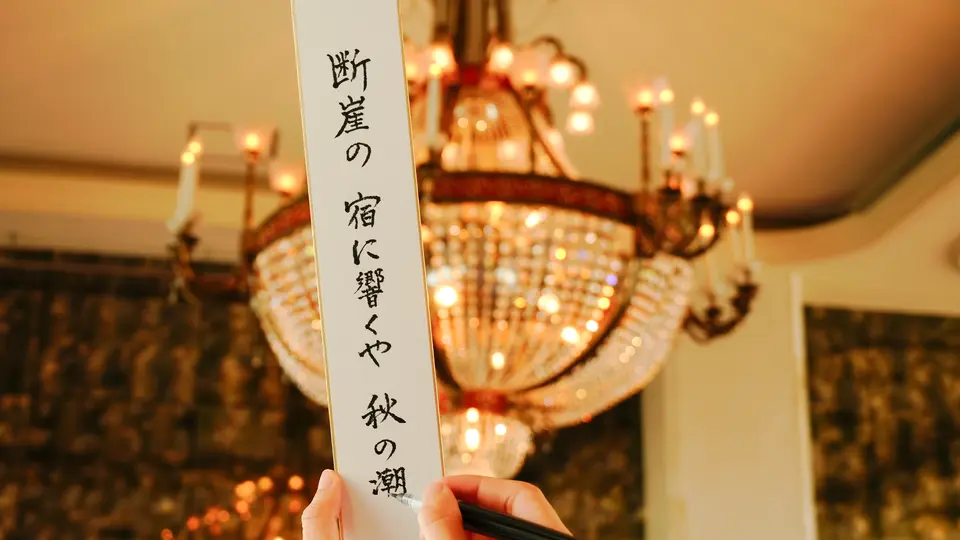 断崖の 宿に響くや 秋の潮